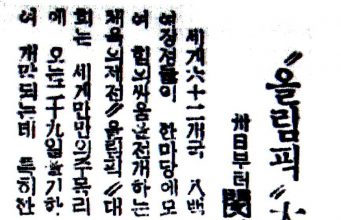 《올림픽》
卅日부터
세게六十二개국 八백
여장정들이 한마당에모
여 힘의싸움을전개하는
채육의제전《올림픽》대
회는 세게만민의주목리
에 오는二十九일을기하
여 개막되는데 특히